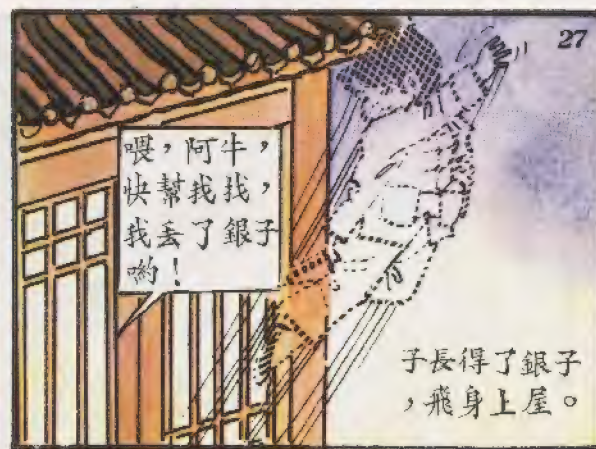 27
喂，阿牛，
快幫我找，
我丟了銀子
喲！
子長得了銀子
，飛身上屋。